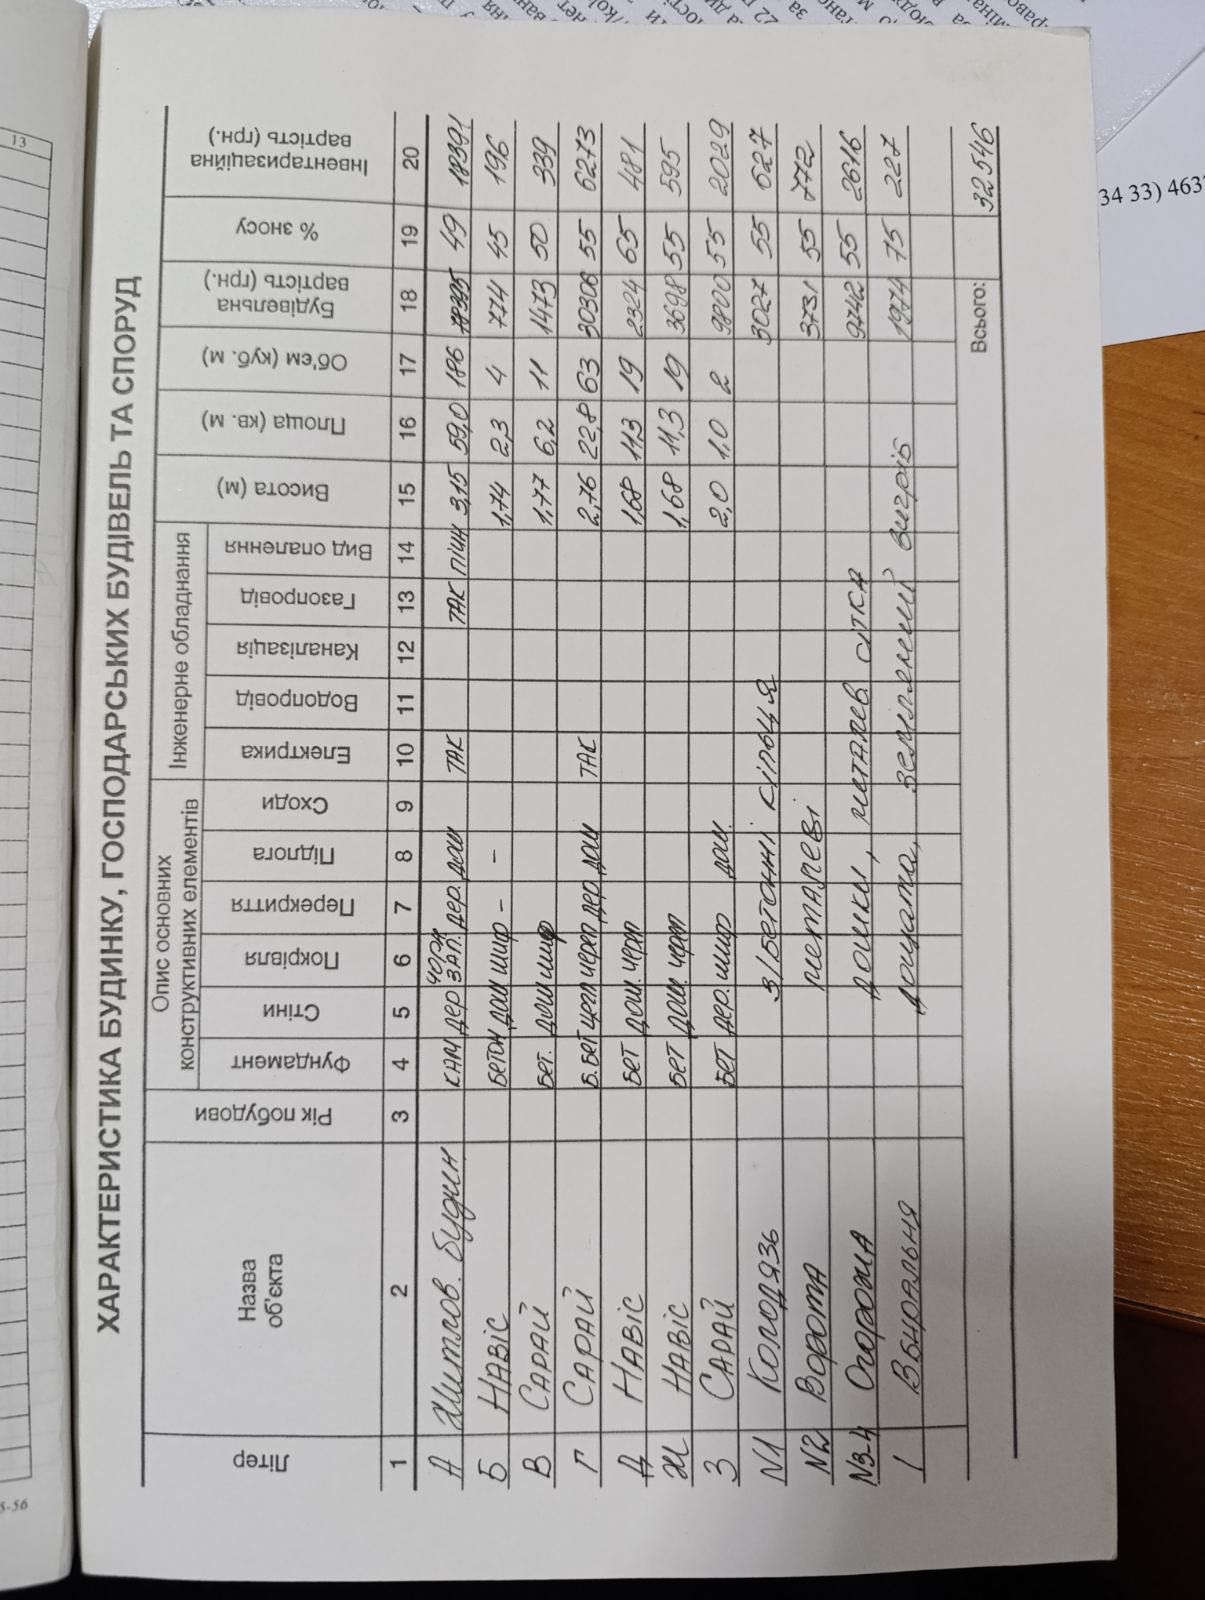 ХАРАКТЕРИСТИКА БУДИНКУ, ГОСПОДАРСЬКИХ БУДІВЕЛЬ ТА СПОРУД
Літер
Назва
об'єкта
Рік побудови
Опис основних
конструктивних елементів
Фундамент
Стіни
Покрівля
Перекриття
Підлога
Сходи
Інженерне обладнання
Електрика
Водопровід
Каналізація
Газопровід
Вид опалення
Висота (м)
Площа (кв. м)
Об'єм (куб. м)
Будівельна
вартість (грн.)
% зносу
Інвентаризаційна
вартість (грн.)
1 2 3 4 5 6 7 8 9 10 11 12 13 14 15 16 17 18 19 20
А Житлов. будин КАМ дер ЗАЛ. дер. дощ ТАК ТАК пічн 3,15 59,0 186 49 18391
Б НАВІС БЕТОН дощ шиф - - 1,74 2,3 4 774 45 196
В САРАЙ БЕТ. дощ шиф 1,77 6,2 11 1473 50 339
Г САРАЙ Б.БЕТ цегл череп дер дощ ТАК 2,76 22,8 63 30306 55 6273
Д НАВІС БЕТ дощ. череп 1,68 11,3 19 2324 65 481
Ж НАВІС БЕТ дощ. череп 1,68 11,3 19 3698 55 595
З САРАЙ БЕТ дер. шиф дощ. 2,0 1,0 2 9800 55 2029
N1 Колодязь З/БЕТОННІ КІЛЬЦЯ 3027 55 627
N2 Ворота металеві 3731 55 772
N3-4 Огорожа дошки, металев. сітка 9742 55 2616
1 Вбиральня дощата, земляний вигріб 1974 75 227
Всього: 32546
13
5-56
34 33) 463